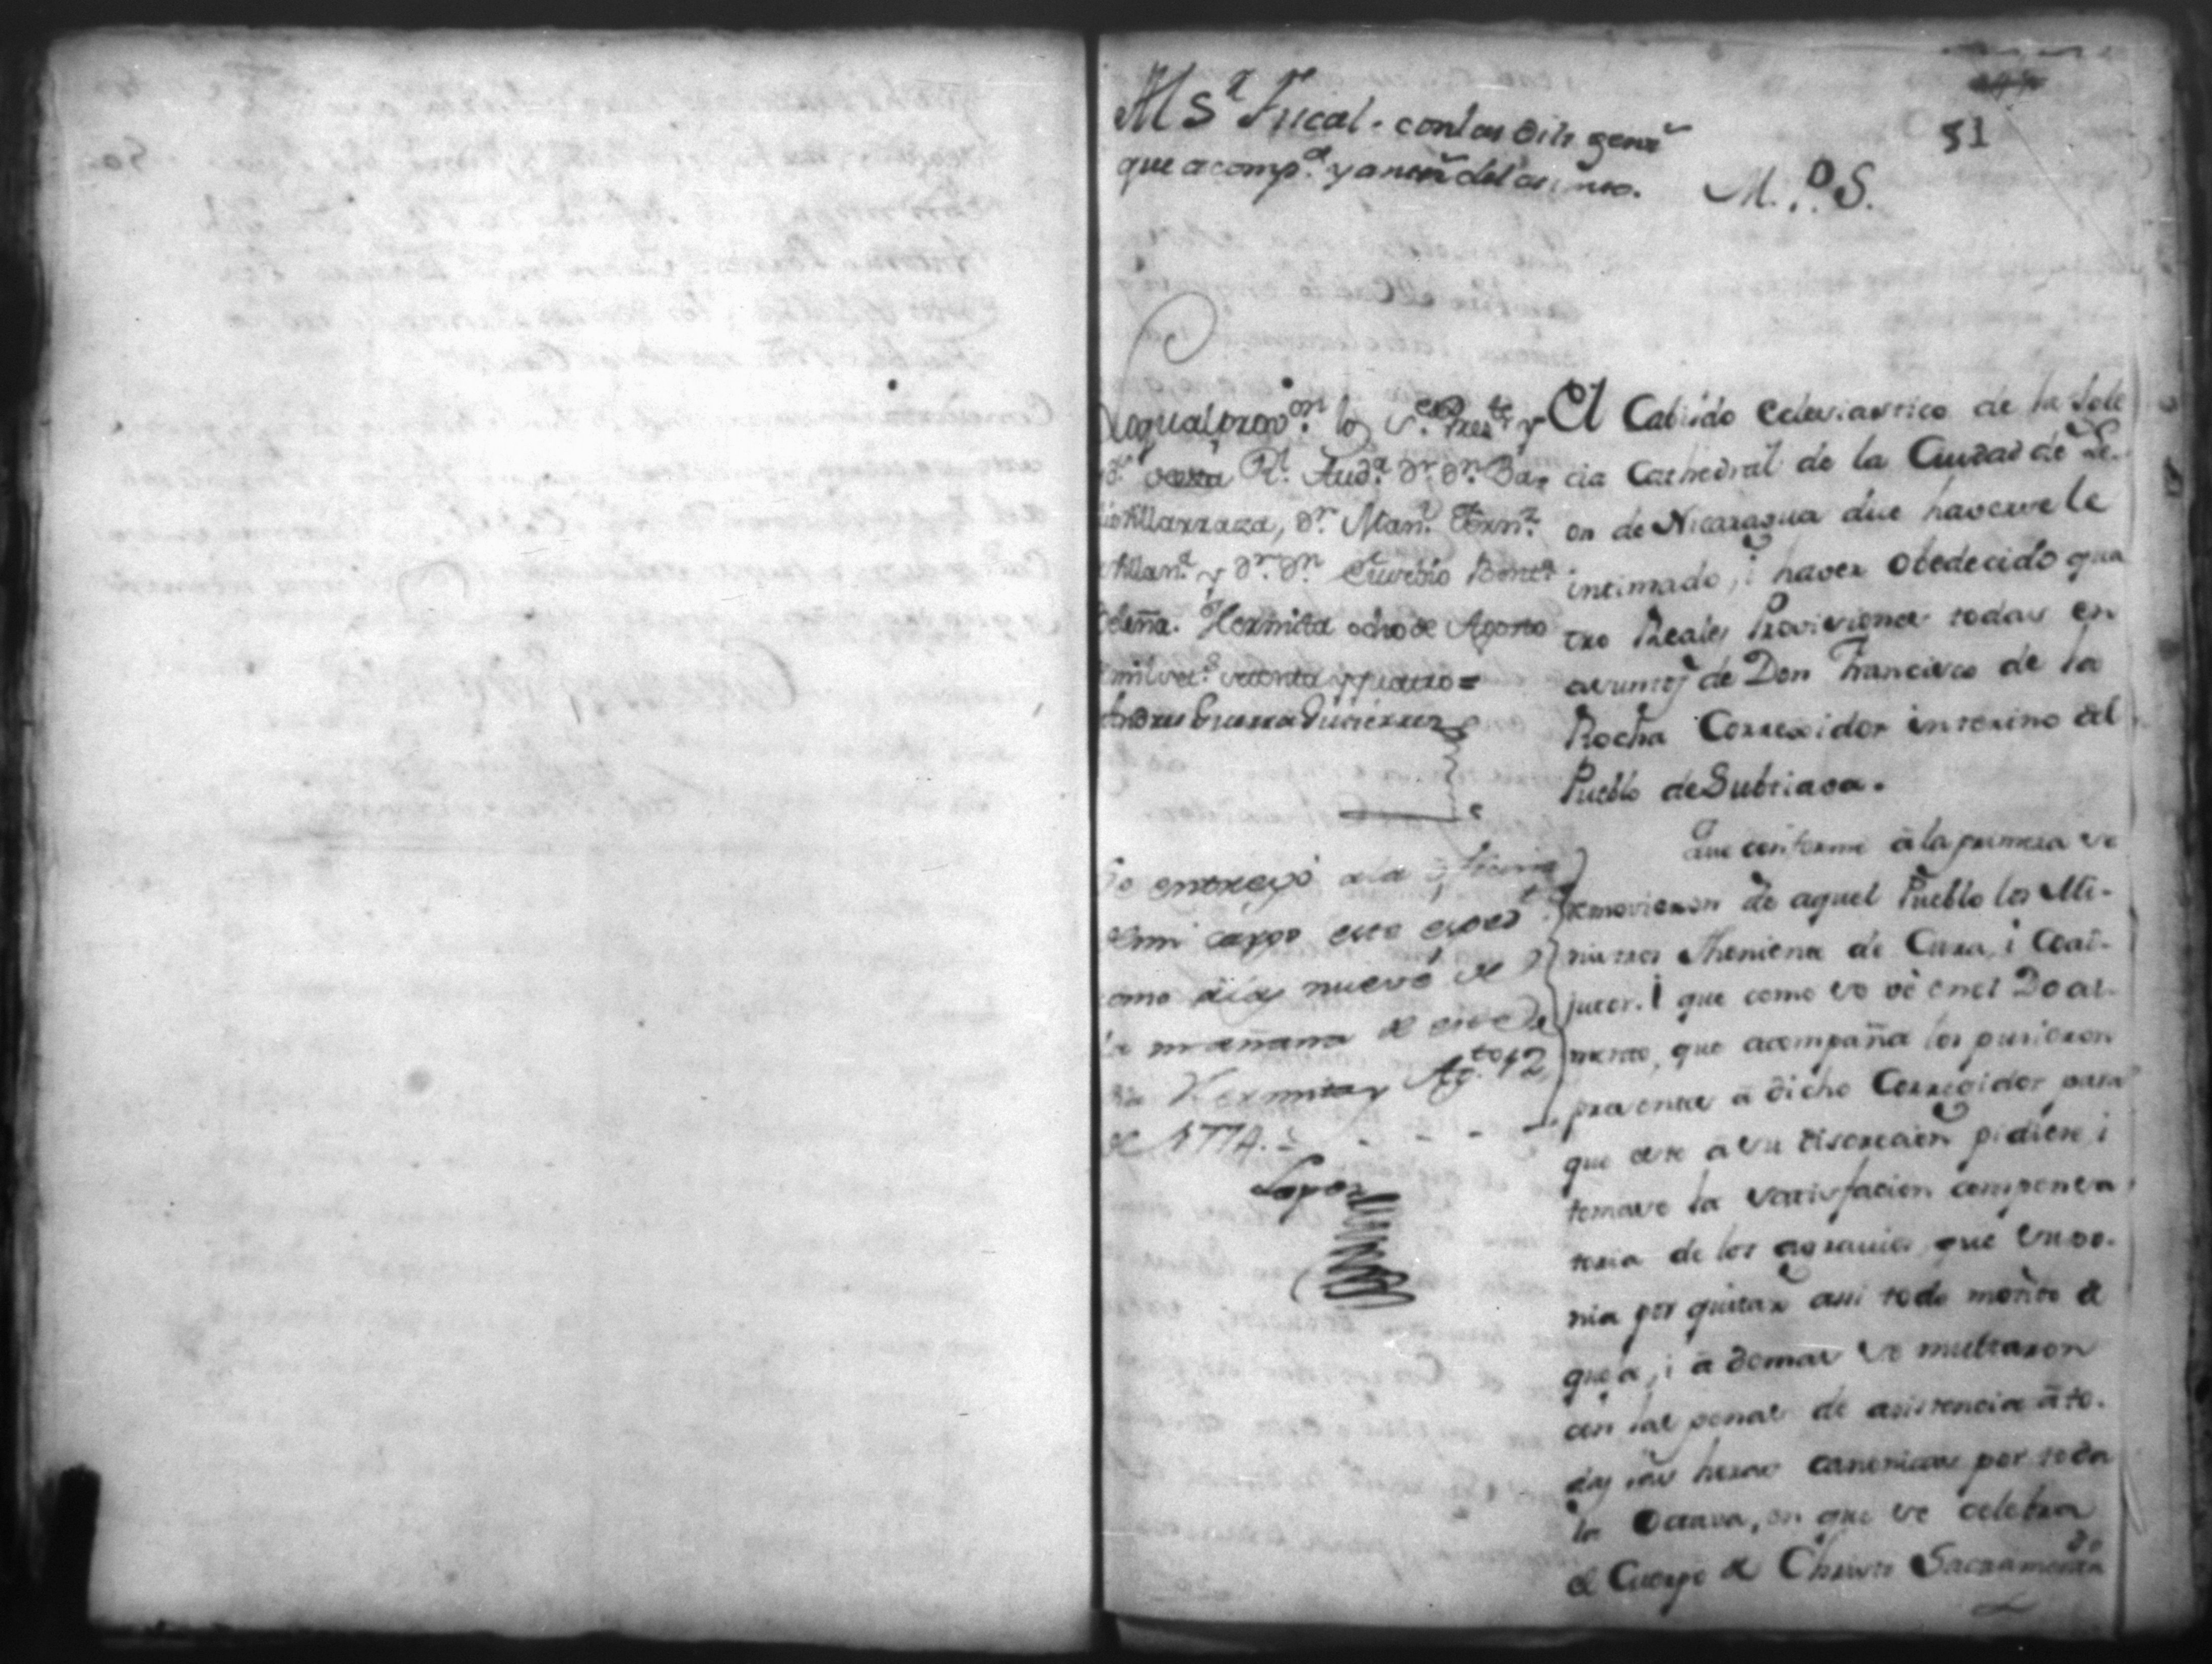 51
Al S.r Fiscal. con las diligenz.s
que acomp.a y anezs. del asumto.
M. P. S.
lo qual prov.on los S.res Pres.te y
R.l Aud.a D.r D.n Ba-
silio Villarraza, D.n Man.l Fern.z
Villan.a y D.r D.n Eusebio Bent.a
Beleña. Hermita ocho de Agosto
mil set.s setenta y quatro =
Andres Guerra Gutierrez
Se entregó a la oficina
de mi cargo este exped.te
como a las nueve de
la mañana de este
dia Hermita y Ag.to 12
de 1774.
Lopez
El Cabildo Eclesiastico de la Igle
cia Cathedral de la Ciudad de Le-
on de Nicaragua dice haversele
intimado, i haver obedecido qua
tro Reales Provisiones todas en
asumptos de Don Francisco de la
Rocha Corregidor interino del
Pueblo de Subtiava.
Que conforme á la primera se
removieron de aquel Pueblo los Mi-
nistros Theniente de Cura, i Coad-
jutor. I que como se vé en el Docu-
mento, que acompaña los pusieron
presentes á dicho Corregidor para
que este a su discrecion pidiese, i
tomase la satisfacion compensa
toria de los agravios, que supo-
nia por quitar assi todo motivo de
quexa, i á demas se multaron
con las penas de asistencia á to-
das las horas canonicas por toda
la Octava, en que se celebra
el Cuerpo de Christo Sacramentado